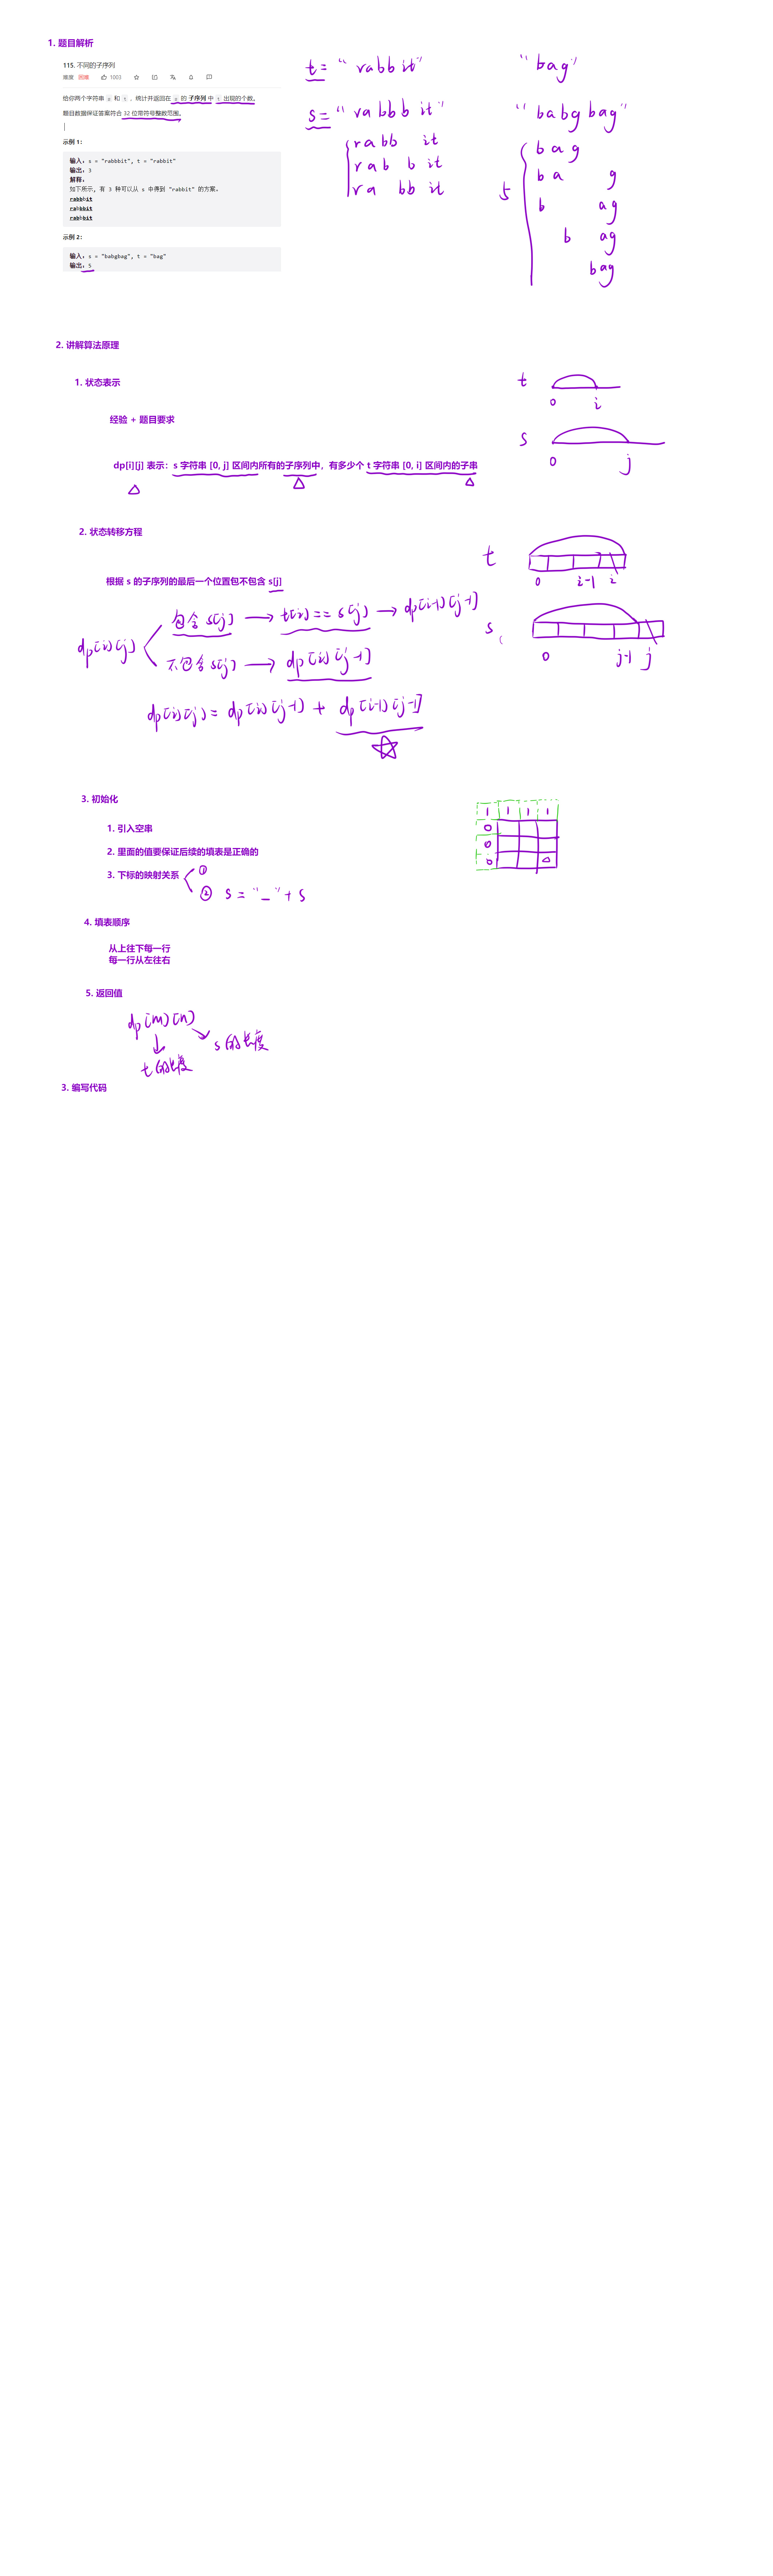 1. 题目解析
115. 不同的子序列
难度 困难 1003
给你两个字符串 s 和 t ，统计并返回在 s 的 子序列 中 t 出现的个数。
题目数据保证答案符合 32 位带符号整数范围。
示例 1：
输入：s = "rabbbit", t = "rabbit"
输出：3
解释：
如下所示, 有 3 种可以从 s 中得到 "rabbit" 的方案。
rabbbit
rabbbit
rabbbit
示例 2：
输入：s = "babgbag", t = "bag"
输出：5
t = "rabb it"
s = "ra bb b it"
rabb it
rab b it
ra bb it
"bag"
"babg bag"
5
b a g
b a g
b ag
b ag
bag
2. 讲解算法原理
1. 状态表示
经验 + 题目要求
dp[i][j] 表示：s 字符串 [0, j] 区间内所有的子序列中，有多少个 t 字符串 [0, i] 区间内的子串
t
0 i
s
0 j
2. 状态转移方程
根据 s 的子序列的最后一个位置包不包含 s[j]
dp[i][j]
包含 s[j] → t[i] == s[j] → dp[i-1][j-1]
不包含 s[j] → dp[i][j-1]
dp[i][j] = dp[i][j-1] + dp[i-1][j-1]
t
0 i-1 i
s
0 j-1 j
3. 初始化
1. 引入空串
2. 里面的值要保证后续的填表是正确的
3. 下标的映射关系
①
② s = "_" + s
1 1 1 1
0
0
0
4. 填表顺序
从上往下每一行
每一行从左往右
5. 返回值
dp[m][n]
s 的长度
t 的长度
3. 编写代码